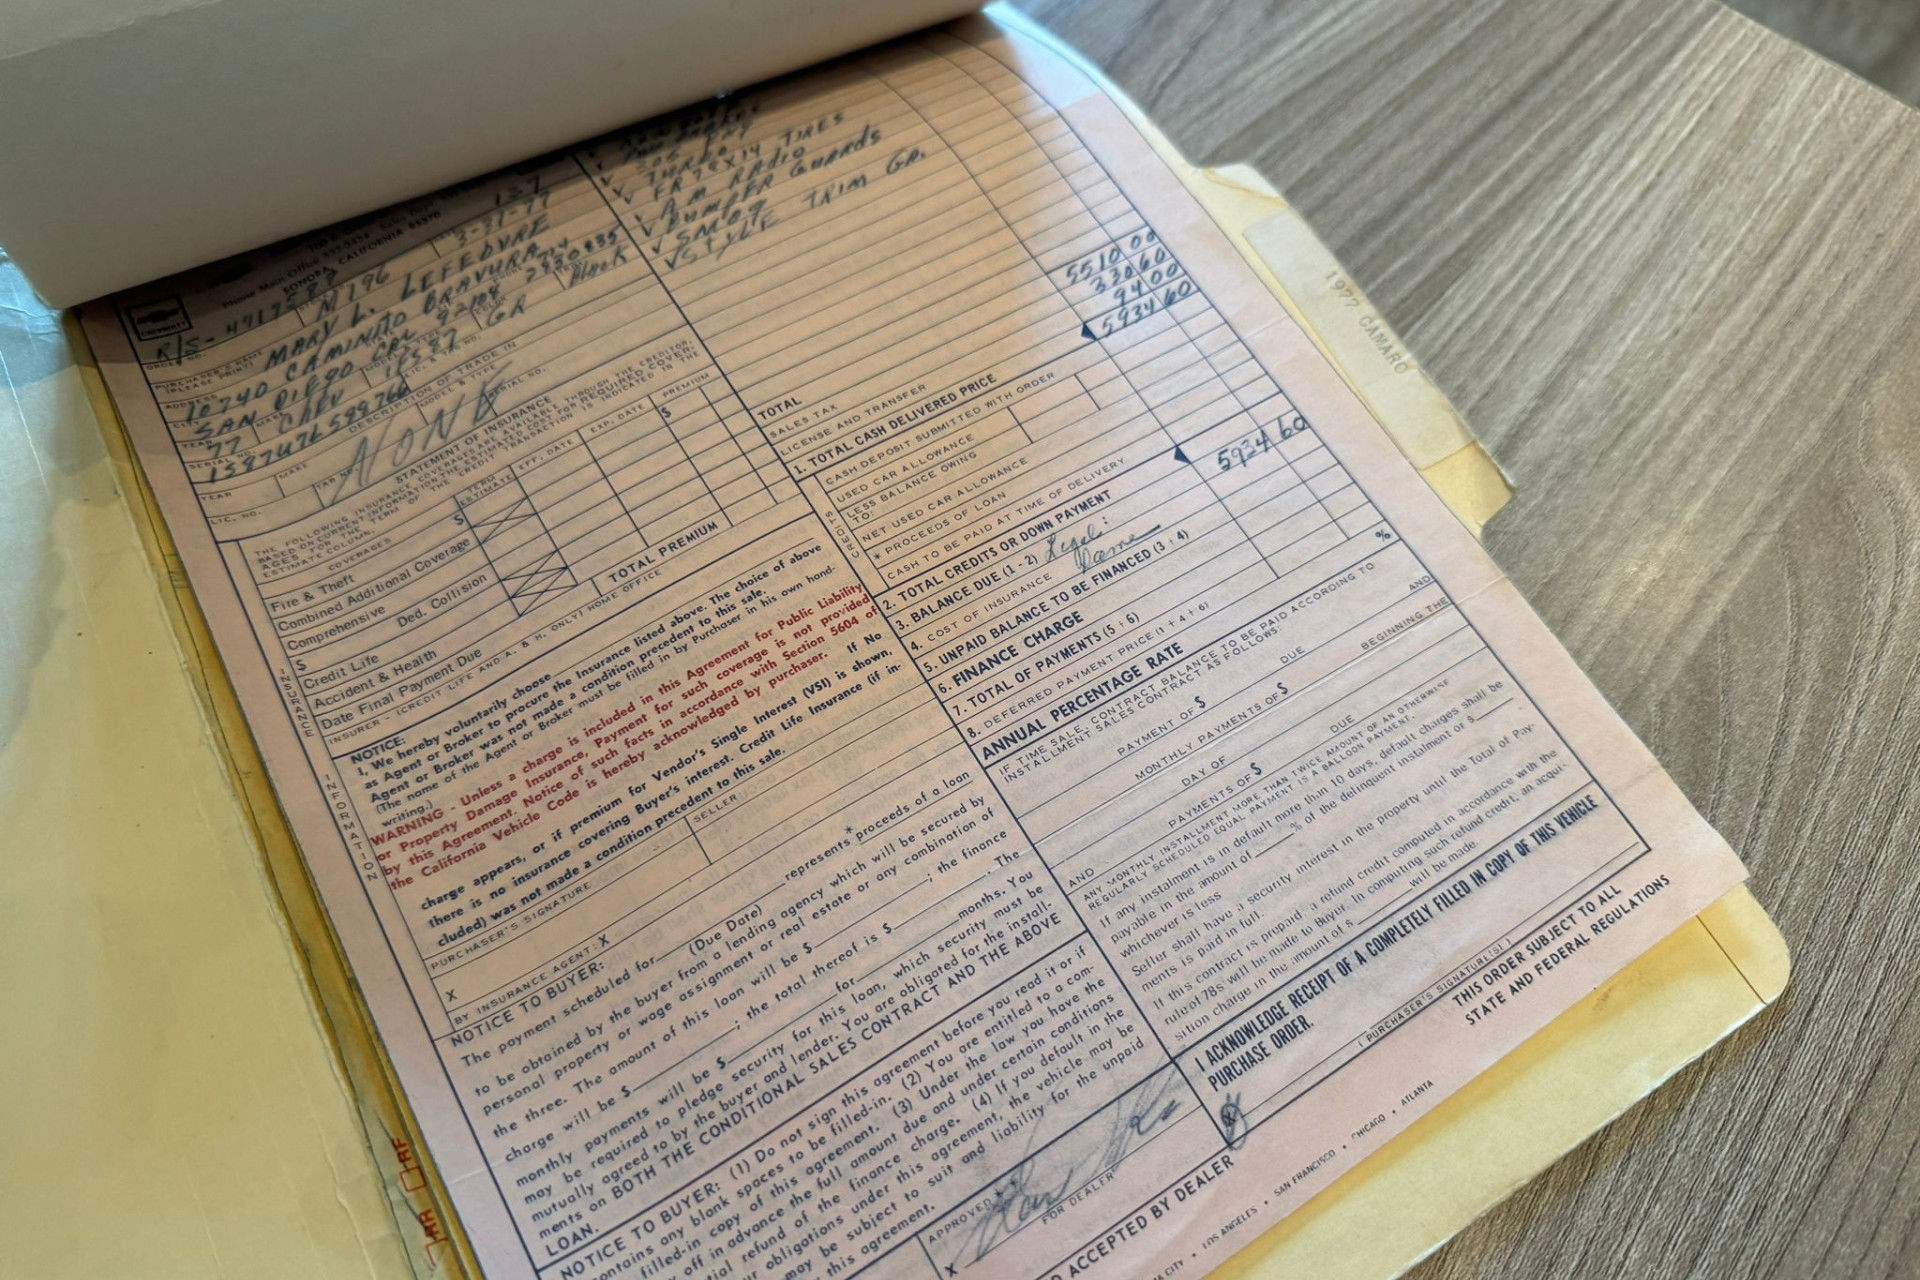 137
Phone Main Office 532-0434
SONORA, CALIFORNIA 95370
3-31-77
CHEVROLET
R/S-
M196
ORDER NO.
PURCHASER'S NAME
(PLEASE PRINT)
MARY L. LEFEBVRE
ADDRESS
10740 CAMINITO BRAVURA
CITY
SAN DIEGO CAL 92108
YEAR
77
MAKE
CHEV
GR
Black
SERIAL NO.
DESCRIPTION OF TRADE IN
YEAR
MAKE
MODEL & TYPE
SERIAL NO.
LIC. NO.
TAB NO.
NONE
305
TURBO
FR 78X14 TIRES
✓ AM RADIO
✓ BUMPER GUARDS
✓ SMOG
✓ STYLE TRIM GR.
5510 00
330 60
94 00
5934 60
STATEMENT OF INSURANCE
THE FOLLOWING INSURANCE COVERAGES ARE AVAILABLE THROUGH THE CREDITOR,
BASED ON CURRENT INFORMATION THE ESTIMATED COST FOR REQUIRED COVER-
AGES FOR THE TERM OF THE CREDIT TRANSACTION IS INDICATED IN THE
ESTIMATE COLUMN.
COVERAGES
TERM
ESTIMATE
EFF. DATE
EXP. DATE
PREMIUM
$
$
Fire & Theft
Combined Additional Coverage
Comprehensive
$ Ded. Collision
Credit Life
Accident & Health
Date Final Payment Due
TOTAL PREMIUM
INSURER - (CREDIT LIFE AND A. & H. ONLY) HOME OFFICE
INSURANCE
INFORMATION
NOTICE:
I, We hereby voluntarily choose
as Agent or Broker to procure the Insurance listed above. The choice of above
Agent or Broker was not made a condition precedent to this sale.
(The name of the Agent or Broker must be filled in by Purchaser in his own hand-
writing.)
WARNING - Unless a charge is included in this Agreement for Public Liability
or Property Damage Insurance, Payment for such coverage is not provided
by this Agreement. Notice of such facts in accordance with Section 5604 of
the California Vehicle Code is hereby acknowledged by purchaser. If No
charge appears, or if premium for Vendor's Single Interest (VSI) is shown,
there is no insurance covering Buyer's interest. Credit Life Insurance (if in-
cluded) was not made a condition precedent to this sale.
PURCHASER'S SIGNATURE
SELLER
X
BY INSURANCE AGENT: X
NOTICE TO BUYER:
The payment scheduled for (Due Date) represents *proceeds of a loan
to be obtained by the buyer from a lending agency which will be secured by
personal property or wage assignment or real estate or any combination of
the three. The amount of this loan will be $ ; the finance
charge will be $ ; the total thereof is $ . The
monthly payments will be $ for months. You
may be required to pledge security for this loan, which security must be
mutually agreed to by the buyer and lender. You are obligated for the install-
ments on BOTH THE CONDITIONAL SALES CONTRACT AND THE ABOVE
LOAN.
NOTICE TO BUYER: (1) Do not sign this agreement before you read it or if
contains any blank spaces to be filled-in. (2) You are entitled to a com-
filled-in copy of this agreement. (3) Under the law you have the
off in advance the full amount due and under certain conditions
tial refund of the finance charge. (4) If you default in the
our obligations under this agreement, the vehicle may be
may be subject to suit and liability for the unpaid
this agreement.
TOTAL
SALES TAX
LICENSE AND TRANSFER
1. TOTAL CASH DELIVERED PRICE
CREDITS
CASH DEPOSIT SUBMITTED WITH ORDER
USED CAR ALLOWANCE
LESS BALANCE OWING
TO:
NET USED CAR ALLOWANCE
* PROCEEDS OF LOAN
CASH TO BE PAID AT TIME OF DELIVERY
2. TOTAL CREDITS OR DOWN PAYMENT
3. BALANCE DUE (1 - 2)
5934 60
4. COST OF INSURANCE
5. UNPAID BALANCE TO BE FINANCED (3 + 4)
6. FINANCE CHARGE
7. TOTAL OF PAYMENTS (5 + 6)
8. DEFERRED PAYMENT PRICE (1 + 4 + 6)
ANNUAL PERCENTAGE RATE %
IF TIME SALE, CONTRACT BALANCE TO BE PAID ACCORDING TO
INSTALLMENT SALES CONTRACT AS FOLLOWS:
PAYMENT OF $ DUE AND
MONTHLY PAYMENTS OF $ BEGINNING THE
DAY OF
AND PAYMENTS OF $ DUE
ANY MONTHLY INSTALLMENT MORE THAN TWICE AMOUNT OF AN OTHERWISE
REGULARLY SCHEDULED EQUAL PAYMENT IS A BALLOON PAYMENT.
If any instalment is in default more than 10 days, default charges shall be
payable in the amount of % of the delinquent instalment or $
whichever is less
Seller shall have a security interest in the property until the Total of Pay-
ments is paid in full.
If this contract is prepaid, a refund credit computed in accordance with the
rule of 78s will be made to Buyer. In computing such refund credit, an acqui-
sition charge in the amount of $ will be made.
I ACKNOWLEDGE RECEIPT OF A COMPLETELY FILLED IN COPY OF THIS VEHICLE
PURCHASE ORDER.
(PURCHASER'S SIGNATURE(S))
THIS ORDER SUBJECT TO ALL
STATE AND FEDERAL REGULATIONS
APPROVED
X
FOR DEALER
ACCEPTED BY DEALER
CITY • LOS ANGELES • SAN FRANCISCO • CHICAGO • ATLANTA
1977 CAMARO